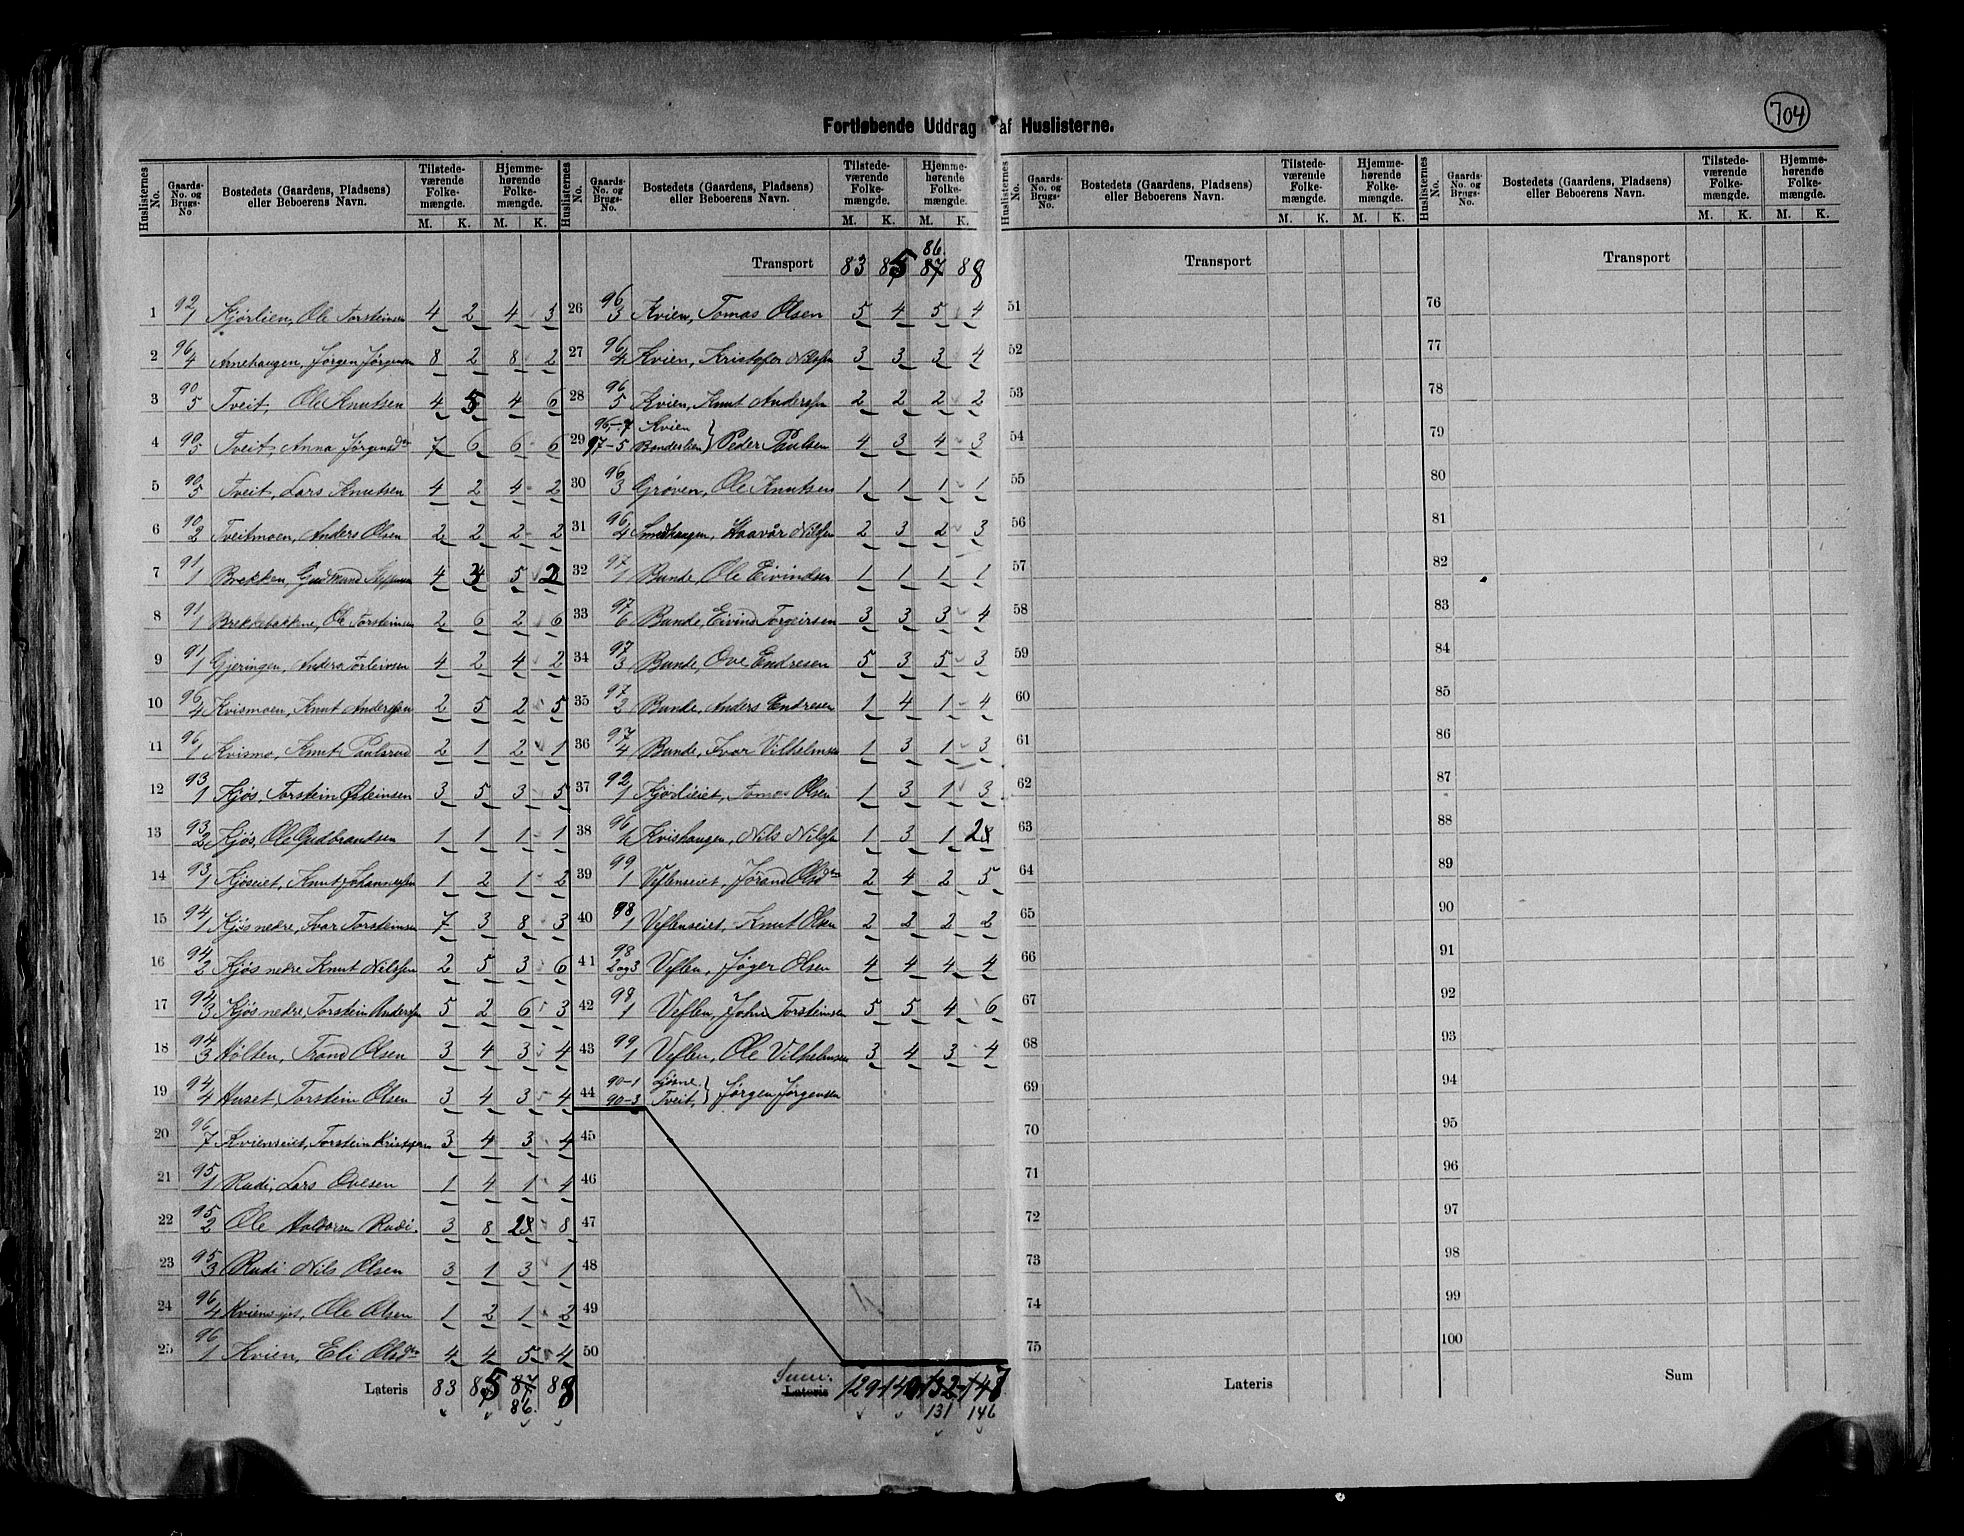 704
Fortløbende Uddrag af Huslisterne.
Huslisternes No. Gaards-No. og Brugs-No. Bostedets (Gaardens, Pladsens) eller Beboerens Navn. Tilstedeværende Folkemængde. M. K. Hjemmehørende Folkemængde. M. K.
1 92/1 Kjørlien, Ole Torsteinsen 4 2 4 3
2 96/4 Annehaugen, Jørgen Jørgensen 8 2 8 2
3 90/5 Tveit, Ole Knutsen 4 5 4 6
4 90/5 Tveit, Anna Jørgensdtr 7 6 6 6
5 90/5 Tveit, Lars Knutsen 4 2 4 2
6 90/2 Tveitmoen, Anders Olsen 2 2 2 2
7 91/1 Brekken, Gudmund 4 5
8 91/1 Brekkebakkene, Ole Torsteinsen 2 6 2 6
9 91/1 Gjeringen, Anders 4 2 4 2
10 96/4 Kvismoen, Knut Anderssen 2 5 2 5
11 96/1 Kvismo, Knut 2 1 2 1
12 93/1 Kjøs, Torstein Østeinsen 3 5 3 5
13 93/2 Kjøs, Ole Gudbrandsen 1 1 1 1
14 93/1 Kjøseiet, Knut Johannessen 1 2 1 2
15 94/1 Kjøs nedre, Ivar Torsteinsen 7 3 8 3
16 94/2 Kjøs nedre Knut Nilssen 2 5 3 6
17 94/3 Kjøs nedre, Torstein Anderssen 5 2 6 3
18 94/3 Hølten, Trond Olsen 3 4 3 4
19 94/4 Huset, Torstein Olsen 3 4 3 4
20 96/7 Kvienseiet, Torstein 3 4 3 4
21 95/1 Rudi, Lars Ovesen 1 4 1 4
22 95/2 Ole Haldorsen Rudi. 3 8 2 8
23 95/3 Rudi Nils Olsen 3 1 3 1
24 96/4 Ole Olsen 1 2 1 2
25 96/1 Kvien, Eli Olsdtr 4 4 5 4
Lateris 83 85 87 88
86.
Transport 83 85 87 88
86.
26 96/3 Kvien, Tomas Olsen 5 4 5 4
27 96/4 Kvien, Kristofer Nilssen 3 3 3 4
28 96/5 Kvien, Knut Anderssen 2 2 2 2
29 96-7 Kvien
97-5 } Peder Paulsen 4 3 4 3
30 96/3 Grøven, Ole Knutsen 1 1 1 1
31 96/4 Smedhaugen, Haavár Nilssen 2 3 2 3
32 97/1 Bunde Ole Eivindsen 1 1 1 1
33 97/6 Bunde, Eivind Torgeirsen 3 3 3 4
34 97/3 Bunde, Ove Endresen 5 3 5 3
35 97/2 Bunde, Anders Endresen 1 4 1 4
36 97/4 Bunde, Ivar Vilhelmsen 1 3 1 3
37 92/1 Kjørlieiet, Tomas Olsen 1 3 1 3
38 96/1 Kvishaugen, Nils Nilssen 1 3 1 2
39 99/1 Veflenseiet, Jørand Olsdtr 2 4 2 5
40 98/1 Veflenseiet, Knut Olsen 2 2 2 2
41 98/2 og 3 Veflen, Jøger Olsen 4 4 4 4
42 98/1 Veflen, John Torsteinsen 5 5 4 6
43 99/1 Veflen, Ole Vilhelmsen 3 4 3 4
44 90-1
90-3 Tveit, } Jørgen Jørgensen
45
46
47
48
49
50
Sum. Lateris 129 140 132 147
131 146
Huslisternes No. Gaards-No. og Brugs-No. Bostedets (Gaardens, Pladsens) eller Beboerens Navn. Tilstedeværende Folkemængde. M. K. Hjemmehørende Folkemængde. M. K.
Transport
51
52
53
54
55
56
57
58
59
60
61
62
63
64
65
66
67
68
69
70
71
72
73
74
75
Lateris
Transport
76
77
78
79
80
81
82
83
84
85
86
87
88
89
90
91
92
93
94
95
96
97
98
99
100
Sum